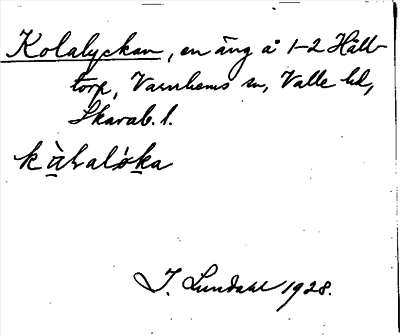 Kolalyckan, en äng å 1-2 Håll-
torp, Varnhems sn, Valle hd,
Skarab. l.
I. Lundahl 1928.